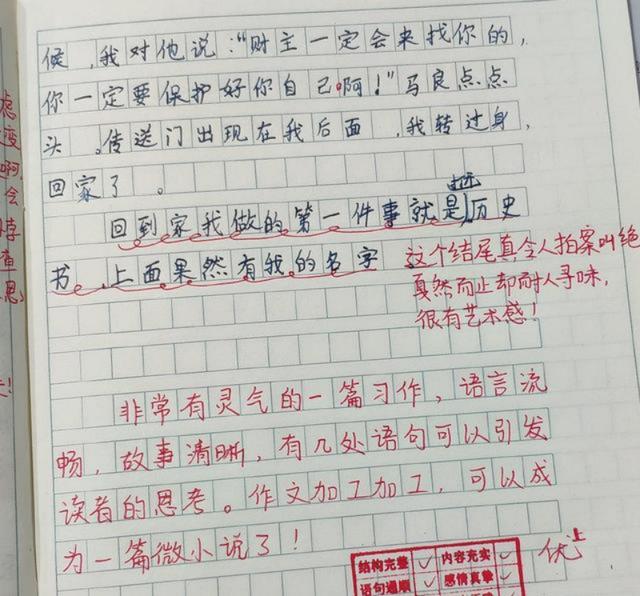 候,我对他说:“财主一定会来找你的,
你一定要保护好你自己啊!”马良点点
头。传送门出现在我后面,我转过身,
回家了。
回到家我做的第一件事就是历史
书,上面果然有我的名字
这个结尾真令人拍案叫绝
戛然而止却耐人寻味,
很有艺术感!
非常有灵气的一篇习作,语言流
畅,故事清晰,有几处语句可以引发
读者的思考。作文加工加工,可以成
为一篇微小说了!
结构完整 ✓ 内容充实 ✓
语句通顺 ✓ 感情真挚 ✓
优上
虑
变
啊
会
查
思